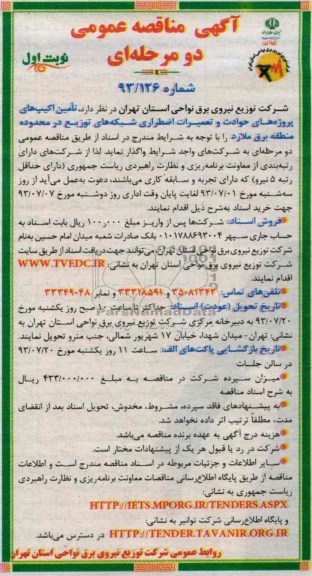 آگهی مناقصه عمومی
دو مرحله‌ای
نوبت اول
شماره ۹۳/۱۲۶
شرکت توزیع نیروی برق نواحی استان تهران در نظر دارد، تأمین اکیپ‌های
پروژه‌های حوادث و تعمیرات اضطراری شبکه‌های توزیع در محدوده
منطقه برق ملارد را با توجه به شرایط مندرج در اسناد از طریق مناقصه عمومی
دو مرحله‌ای به شرکت‌های واجد شرایط واگذار نماید. لذا از شرکت‌های دارای
رتبه‌بندی از معاونت برنامه‌ریزی و نظارت راهبردی ریاست جمهوری (دارای حداقل
رتبه ۵ نیرو) که دارای تجربه و سابقه کاری می‌باشند، دعوت به‌عمل می‌آید از روز
سه‌شنبه مورخ ۹۳/۰۷/۰۱ لغایت پایان وقت اداری روز دوشنبه مورخ ۹۳/۰۷/۰۷
جهت خرید اسناد به‌شرح ذیل اقدام نمایند.
فروش اسناد: شرکت‌ها پس از واریز مبلغ ۱۰۰٫۰۰۰ ریال بابت اسناد به
حساب جاری سپهر ۰۱۰۱۷۸۸۶۹۳۰۰۴ بانک صادرات شعبه میدان امام حسین به‌نام
شرکت توزیع نیروی برق نواحی استان تهران می‌توانند جهت دریافت اسناد از طریق سایت
شرکت توزیع نیروی برق نواحی استان تهران به نشانی: WWW.TVEDC.IR
اقدام نمایند.
تلفن‌های تماس: ۳۵۰۸۱۳۴۲ - ۳۳۳۱۸۵۹۱ و نمابر ۳۳۳۴۹۰۴۸
تاریخ تحویل (عودت) اسناد: حداکثر تا ساعت ۱۰ صبح روز یکشنبه مورخ
۹۳/۰۷/۲۰ به دبیرخانه مرکزی شرکت توزیع نیروی برق نواحی استان تهران به
نشانی: تهران- میدان شهدا، خیابان ۱۷ شهریور شمالی، جنب مترو تحویل نمایند.
تاریخ بازگشایی پاکت‌های الف: ساعت ۱۱ روز یکشنبه مورخ ۹۳/۰۷/۲۰
در سالن جلسات
میزان سپرده شرکت در مناقصه به مبلغ ۴۳۳/۰۰۰/۰۰۰ ریال
به شرح اسناد مناقصه
به پیشنهادهای فاقد سپرده، مشروط، مخدوش، تحویل اسناد بعد از انقضای
مدت، مطلقاً ترتیب اثر داده نخواهد شد.
هزینه درج آگهی به عهده برنده مناقصه می‌باشد.
شرکت در رد یا قبول هر یک از پیشنهادات مختار است.
سایر اطلاعات و جزئیات مربوطه در اسناد مناقصه مندرج است و اطلاعات
مناقصه از طریق پایگاه اطلاع‌رسانی مناقصات معاونت برنامه‌ریزی و نظارت راهبردی
ریاست جمهوری به نشانی:
HTTP://IETS.MPORG.IR/TENDERS.ASPX
و پایگاه اطلاع‌رسانی شرکت توانیر به نشانی:
HTTP://TENDER.TAVANIR.ORG.IR در دسترس می‌باشد.
روابط عمومی شرکت توزیع نیروی برق نواحی استان تهران